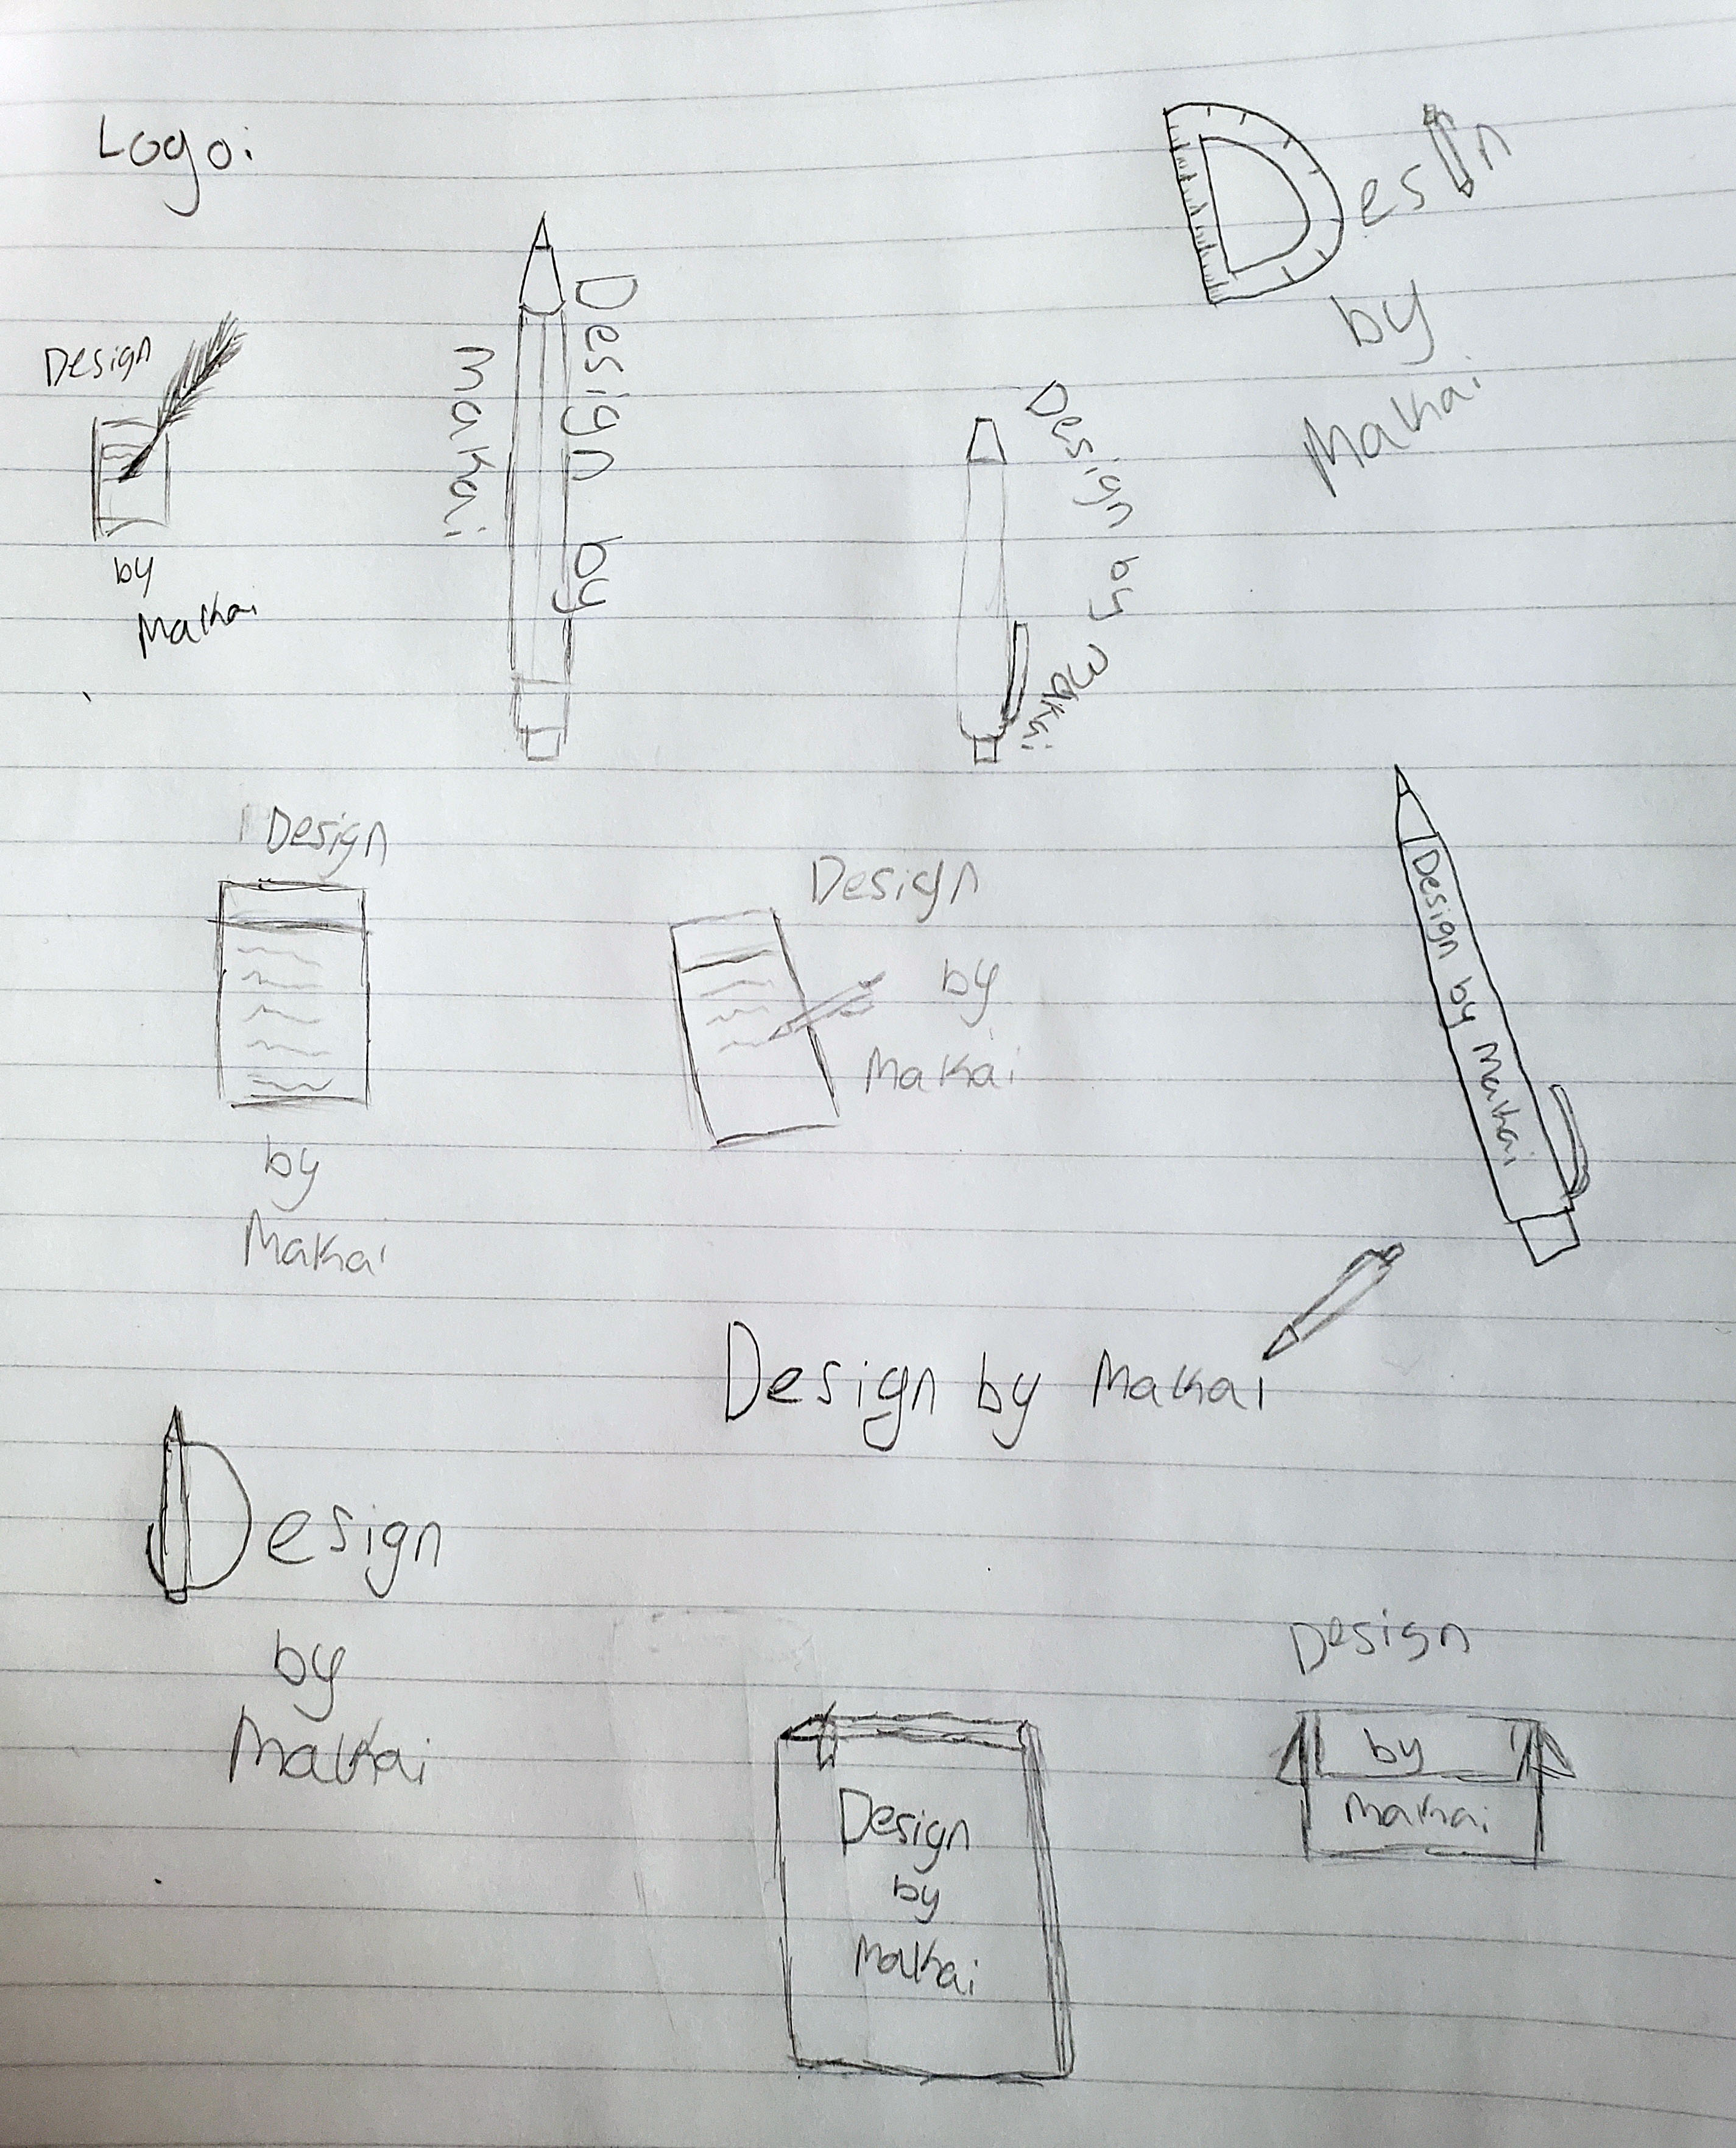 Logo:
Desin
by
Makai
Design
by
Makai
Design by
Makai
Design by Makai
Design
by
Makai
Design
by
Makai
Design by Makai
Design by Makai
Design
by
Makai
Design
by
Makai
Design
by
Makai